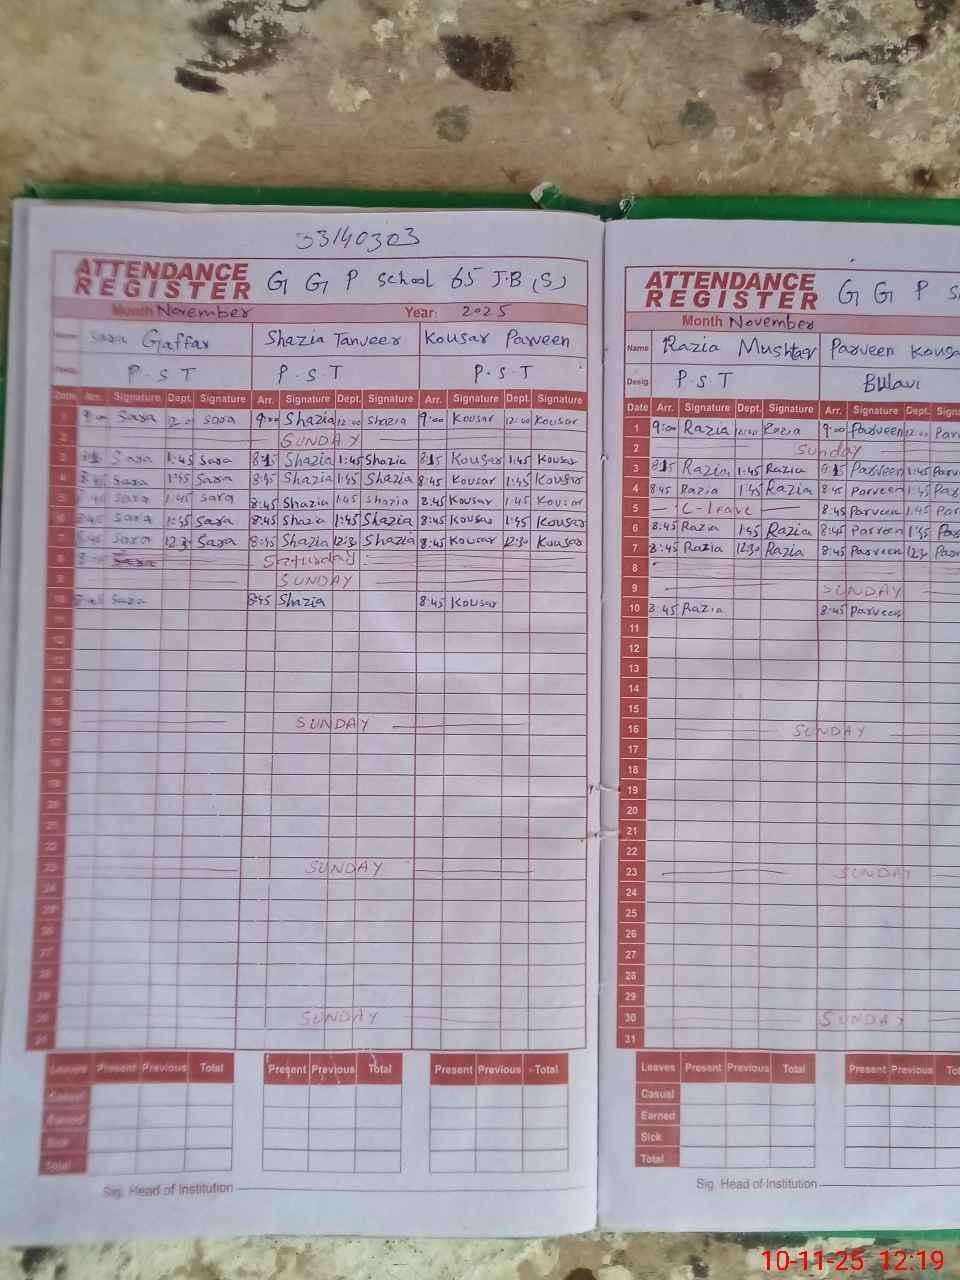 33140303
ATTENDANCE REGISTER G G P School 65 J.B (S)
Month November Year: 2025
Name Sara Gaffar Shazia Tanveer Kousar Parveen
Desig. P.S.T P.S.T P.S.T
Date Arr. Signature Dept. Signature Arr. Signature Dept. Signature Arr. Signature Dept. Signature
1 9:00 Sara 12:00 Sara 9:00 Shazia 12:00 Shazia 9:00 Kousar 12:00 Kousar
2 SUNDAY
3 8:15 Sara 1:45 Sara 8:15 Shazia 1:45 Shazia 8:15 Kousar 1:45 Kousar
4 8:45 Sara 1:45 Sara 8:45 Shazia 1:45 Shazia 8:45 Kousar 1:45 Kousar
5 8:45 Sara 1:45 Sara 8:45 Shazia 1:45 Shazia 8:45 Kousar 1:45 Kousar
6 8:45 Sara 1:45 Sara 8:45 Shazia 1:45 Shazia 8:45 Kousar 1:45 Kousar
7 8:45 Sara 12:30 Sara 8:45 Shazia 12:30 Shazia 8:45 Kousar 12:30 Kousar
8 Sara Saturday
9 SUNDAY
10 8:45 Sara 8:45 Shazia 8:45 Kousar
11
12
13
14
15
16 SUNDAY
17
18
19
20
21
22
23 SUNDAY
24
25
26
27
28
29
30 SUNDAY
31
Leaves Present Previous Total Present Previous Total Present Previous Total
Casual
Earned
Sick
Total
Sig. Head of Institution
ATTENDANCE REGISTER G G P
Month November
Name Razia Mushtaq Parveen Kousa
Desig. P.S.T Bulavi
Date Arr. Signature Dept. Signature Arr. Signature Dept. Sign
1 9:00 Razia 12:00 Razia 9:00 Parveen 12:00 Par
2 Sunday
3 8:15 Razia 1:45 Razia 8:15 Parveen 1:45 Parv
4 8:45 Razia 1:45 Razia 8:45 Parveen 1:45 Par
5 C-leave 8:45 Parveen 1:45 Par
6 8:45 Razia 1:45 Razia 8:45 Parveen 1:45 Par
7 8:45 Razia 12:30 Razia 8:45 Parveen 12:30 Par
8
9 SUNDAY
10 8:45 Razia 8:45 Parveen
11
12
13
14
15
16 SUNDAY
17
18
19
20
21
22
23 SUNDAY
24
25
26
27
28
29
30 SUNDAY
31
Leaves Present Previous Total Present Previous Tot
Casual
Earned
Sick
Total
Sig. Head of Institution
10-11-25 12:19